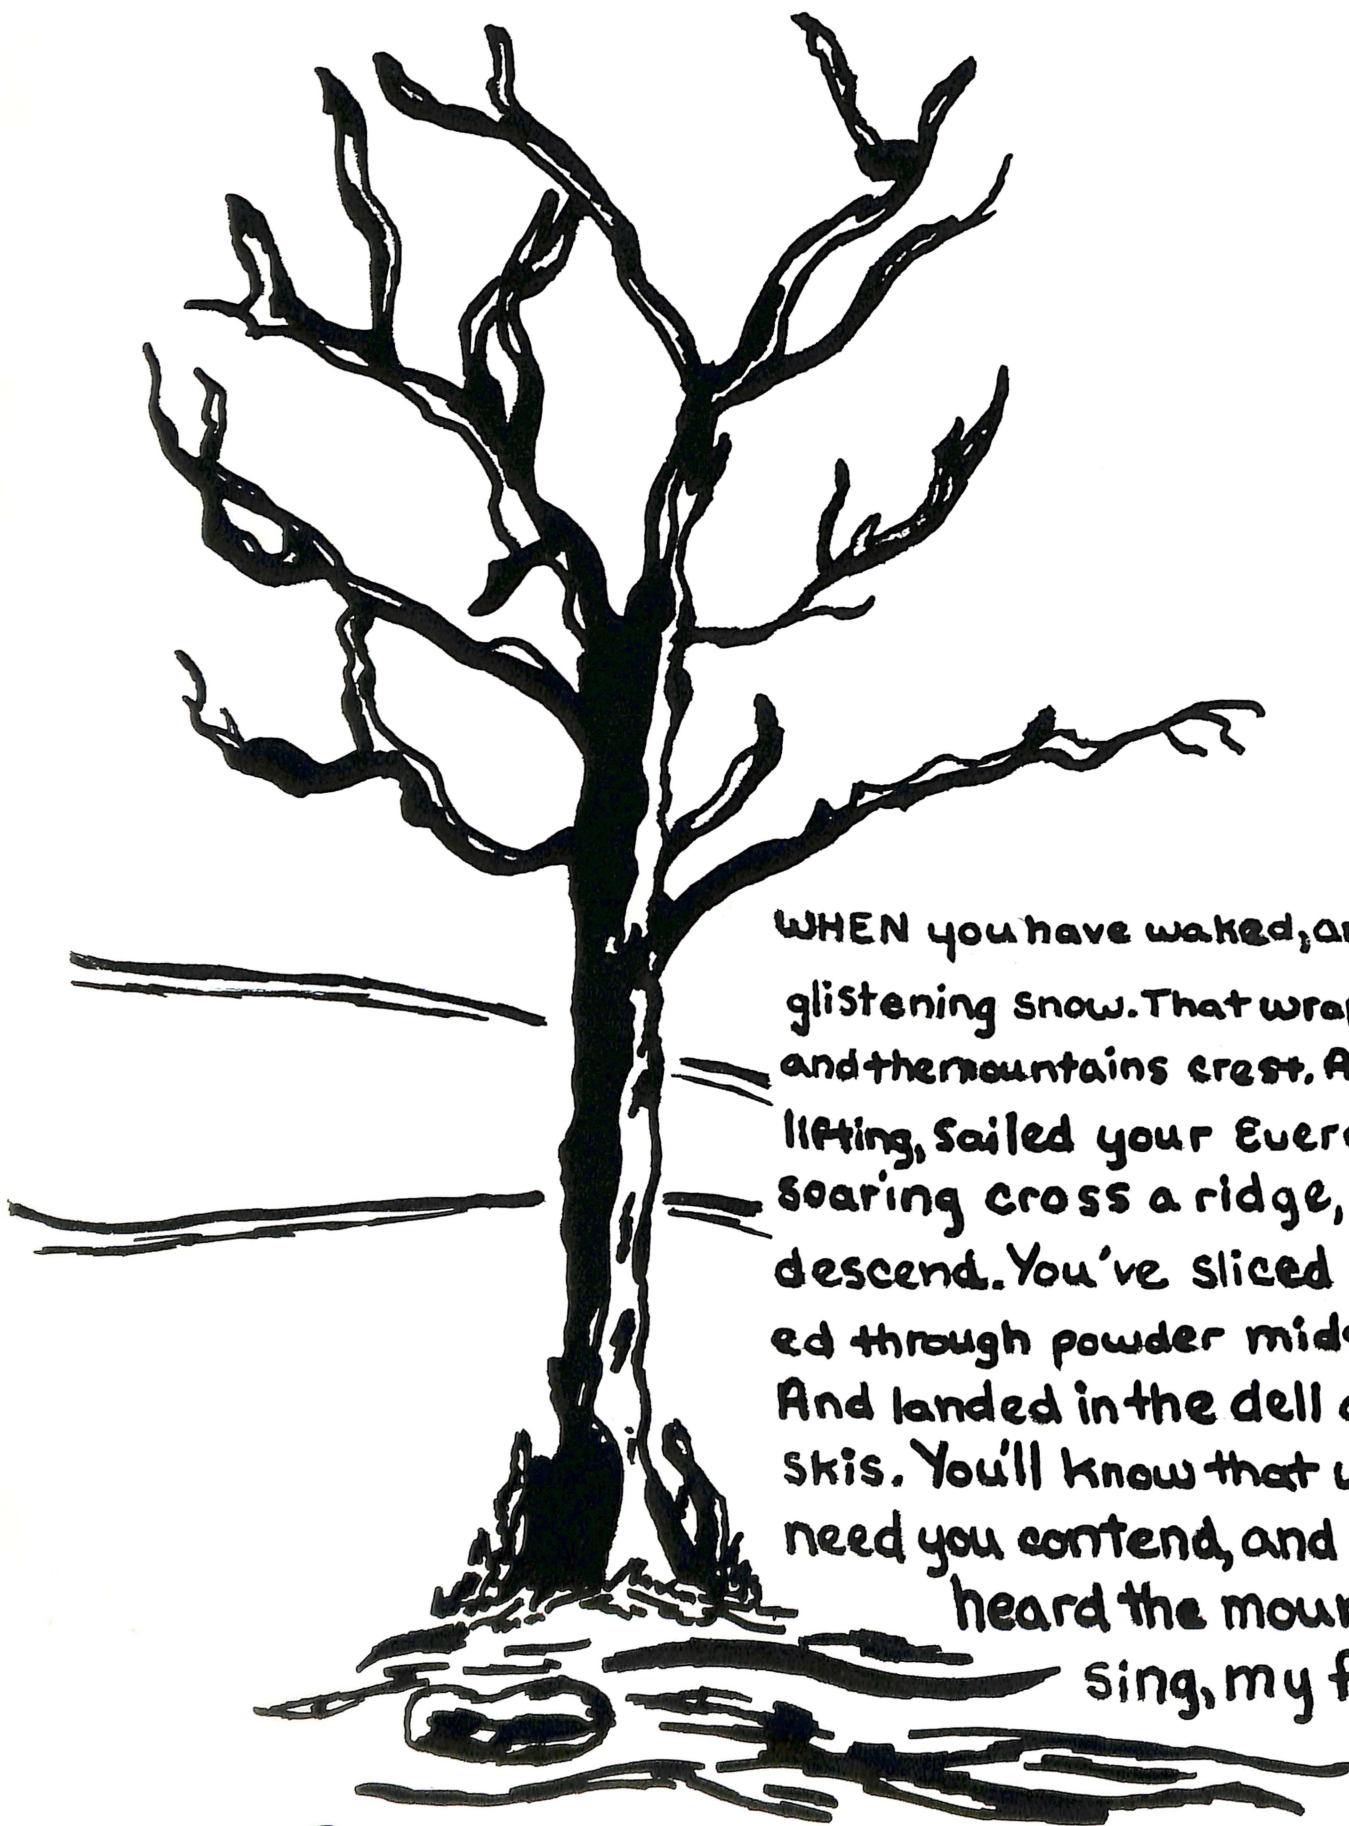 WHEN you have waked, an
glistening snow. That wrap
and the mountains crest. A
lifting, sailed your Evere
soaring cross a ridge,
descend. You've sliced
ed through powder mid
And landed in the dell
skis. You'll know that
need you contend, and
heard the moun
sing, my f